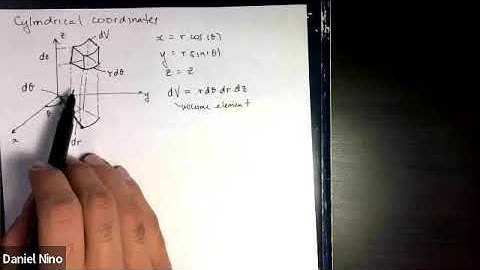 Cylindrical coordinates
z
dV
dz
r dθ
dθ
y
θ
x
dr
x = r cos(θ)
y = r sin(θ)
z = z
dV = r dθ dr dz
volume element
Daniel Nino